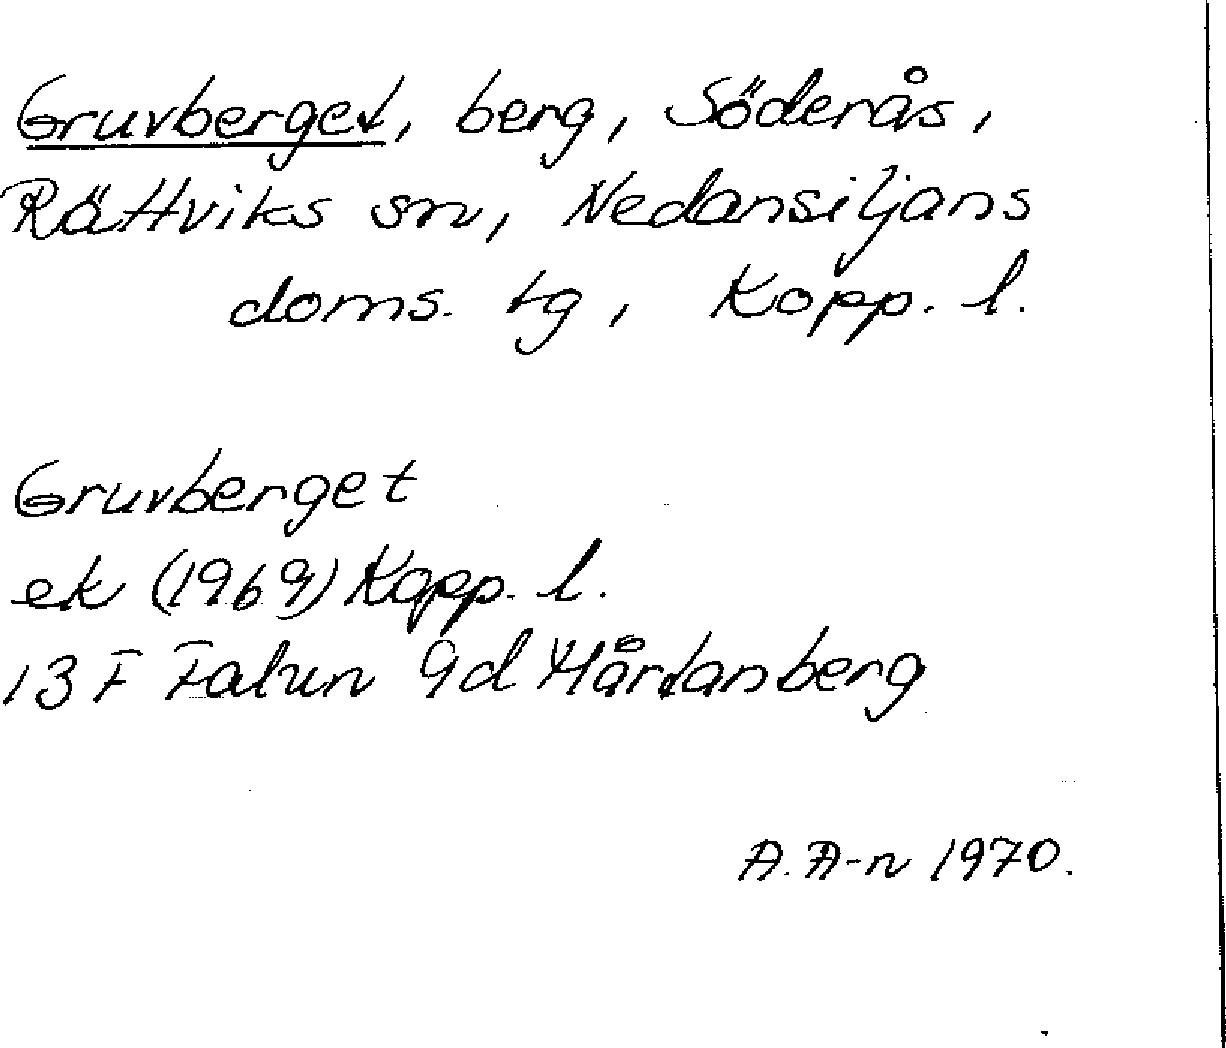 Gruvberget, berg, Söderås,
Rättviks sn, Nedansiljans
doms. tg, Kopp. l.
Gruvberget
ek (1969) Kopp. l.
13 F Falun 9d Mårtanberg
A. A-n 1970.